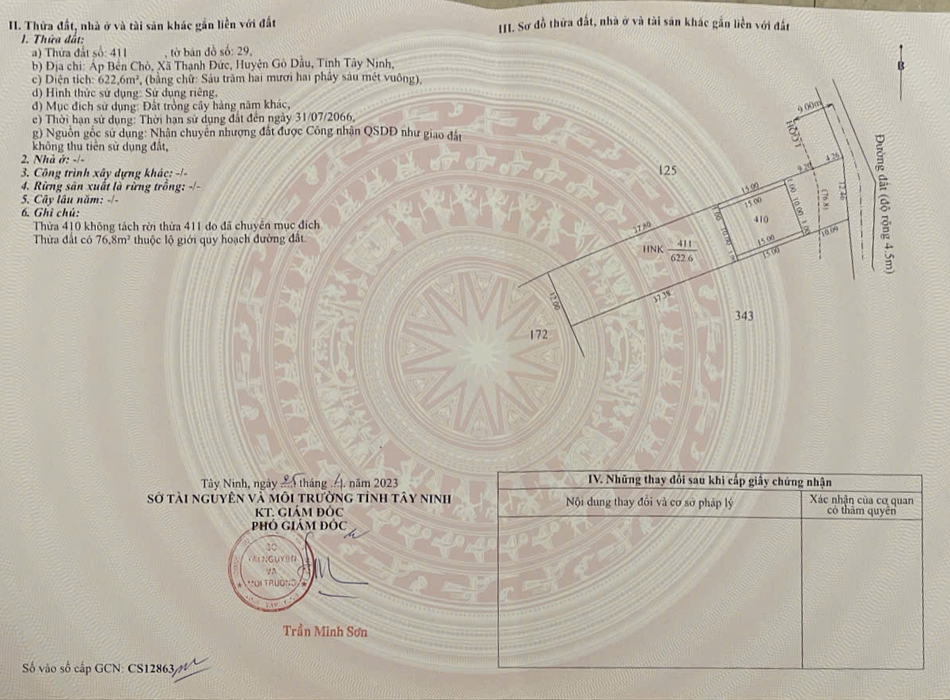 II. Thửa đất, nhà ở và tài sản khác gắn liền với đất
1. Thửa đất:
a) Thửa đất số: 411 , tờ bản đồ số: 29,
b) Địa chỉ: Ấp Bến Chò, Xã Thạnh Đức, Huyện Gò Dầu, Tỉnh Tây Ninh,
c) Diện tích: 622,6m², (bằng chữ: Sáu trăm hai mươi hai phẩy sáu mét vuông),
d) Hình thức sử dụng: Sử dụng riêng,
đ) Mục đích sử dụng: Đất trồng cây hàng năm khác,
e) Thời hạn sử dụng: Thời hạn sử dụng đất đến ngày 31/07/2066,
g) Nguồn gốc sử dụng: Nhận chuyển nhượng đất được Công nhận QSDĐ như giao đất
không thu tiền sử dụng đất,
2. Nhà ở: -/-
3. Công trình xây dựng khác: -/-
4. Rừng sản xuất là rừng trồng: -/-
5. Cây lâu năm: -/-
6. Ghi chú:
Thửa 410 không tách rời thửa 411 do đã chuyển mục đích
Thửa đất có 76,8m² thuộc lộ giới quy hoạch đường đất.
Tây Ninh, ngày 25 tháng 4 năm 2023
SỞ TÀI NGUYÊN VÀ MÔI TRƯỜNG TỈNH TÂY NINH
KT. GIÁM ĐỐC
PHÓ GIÁM ĐỐC
SỞ
TÀI NGUYÊN
VÀ
MÔI TRƯỜNG
Trần Minh Sơn
Số vào sổ cấp GCN: CS12863
III. Sơ đồ thửa đất, nhà ở và tài sản khác gắn liền với đất
B
9.00m
HLQHGT
Đường đất (độ rộng 4.5m)
125
9.20
4.26
12.46
(76.8)
10.09
15.00
15.00
1.00
10.00
1.00
410
1.00
10.00
15.00
15.00
37.80
HNK
411
622.6
37.38
12.00
343
172
IV. Những thay đổi sau khi cấp giấy chứng nhận
Nội dung thay đổi và cơ sở pháp lý
Xác nhận của cơ quan
có thẩm quyền